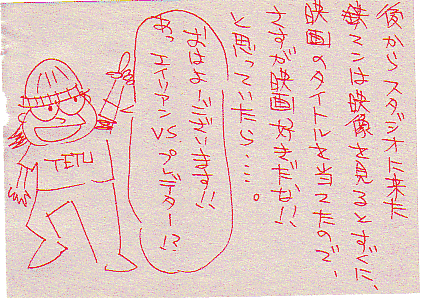 後からスタジオに来た
鉄マンは映像を見るとすぐに、
映画のタイトルを当てたので、
さすが映画好きだな!!
と思っていたら・・・・。
おはよーございます!!
あっエイリアンVSプレデター!?
TETU